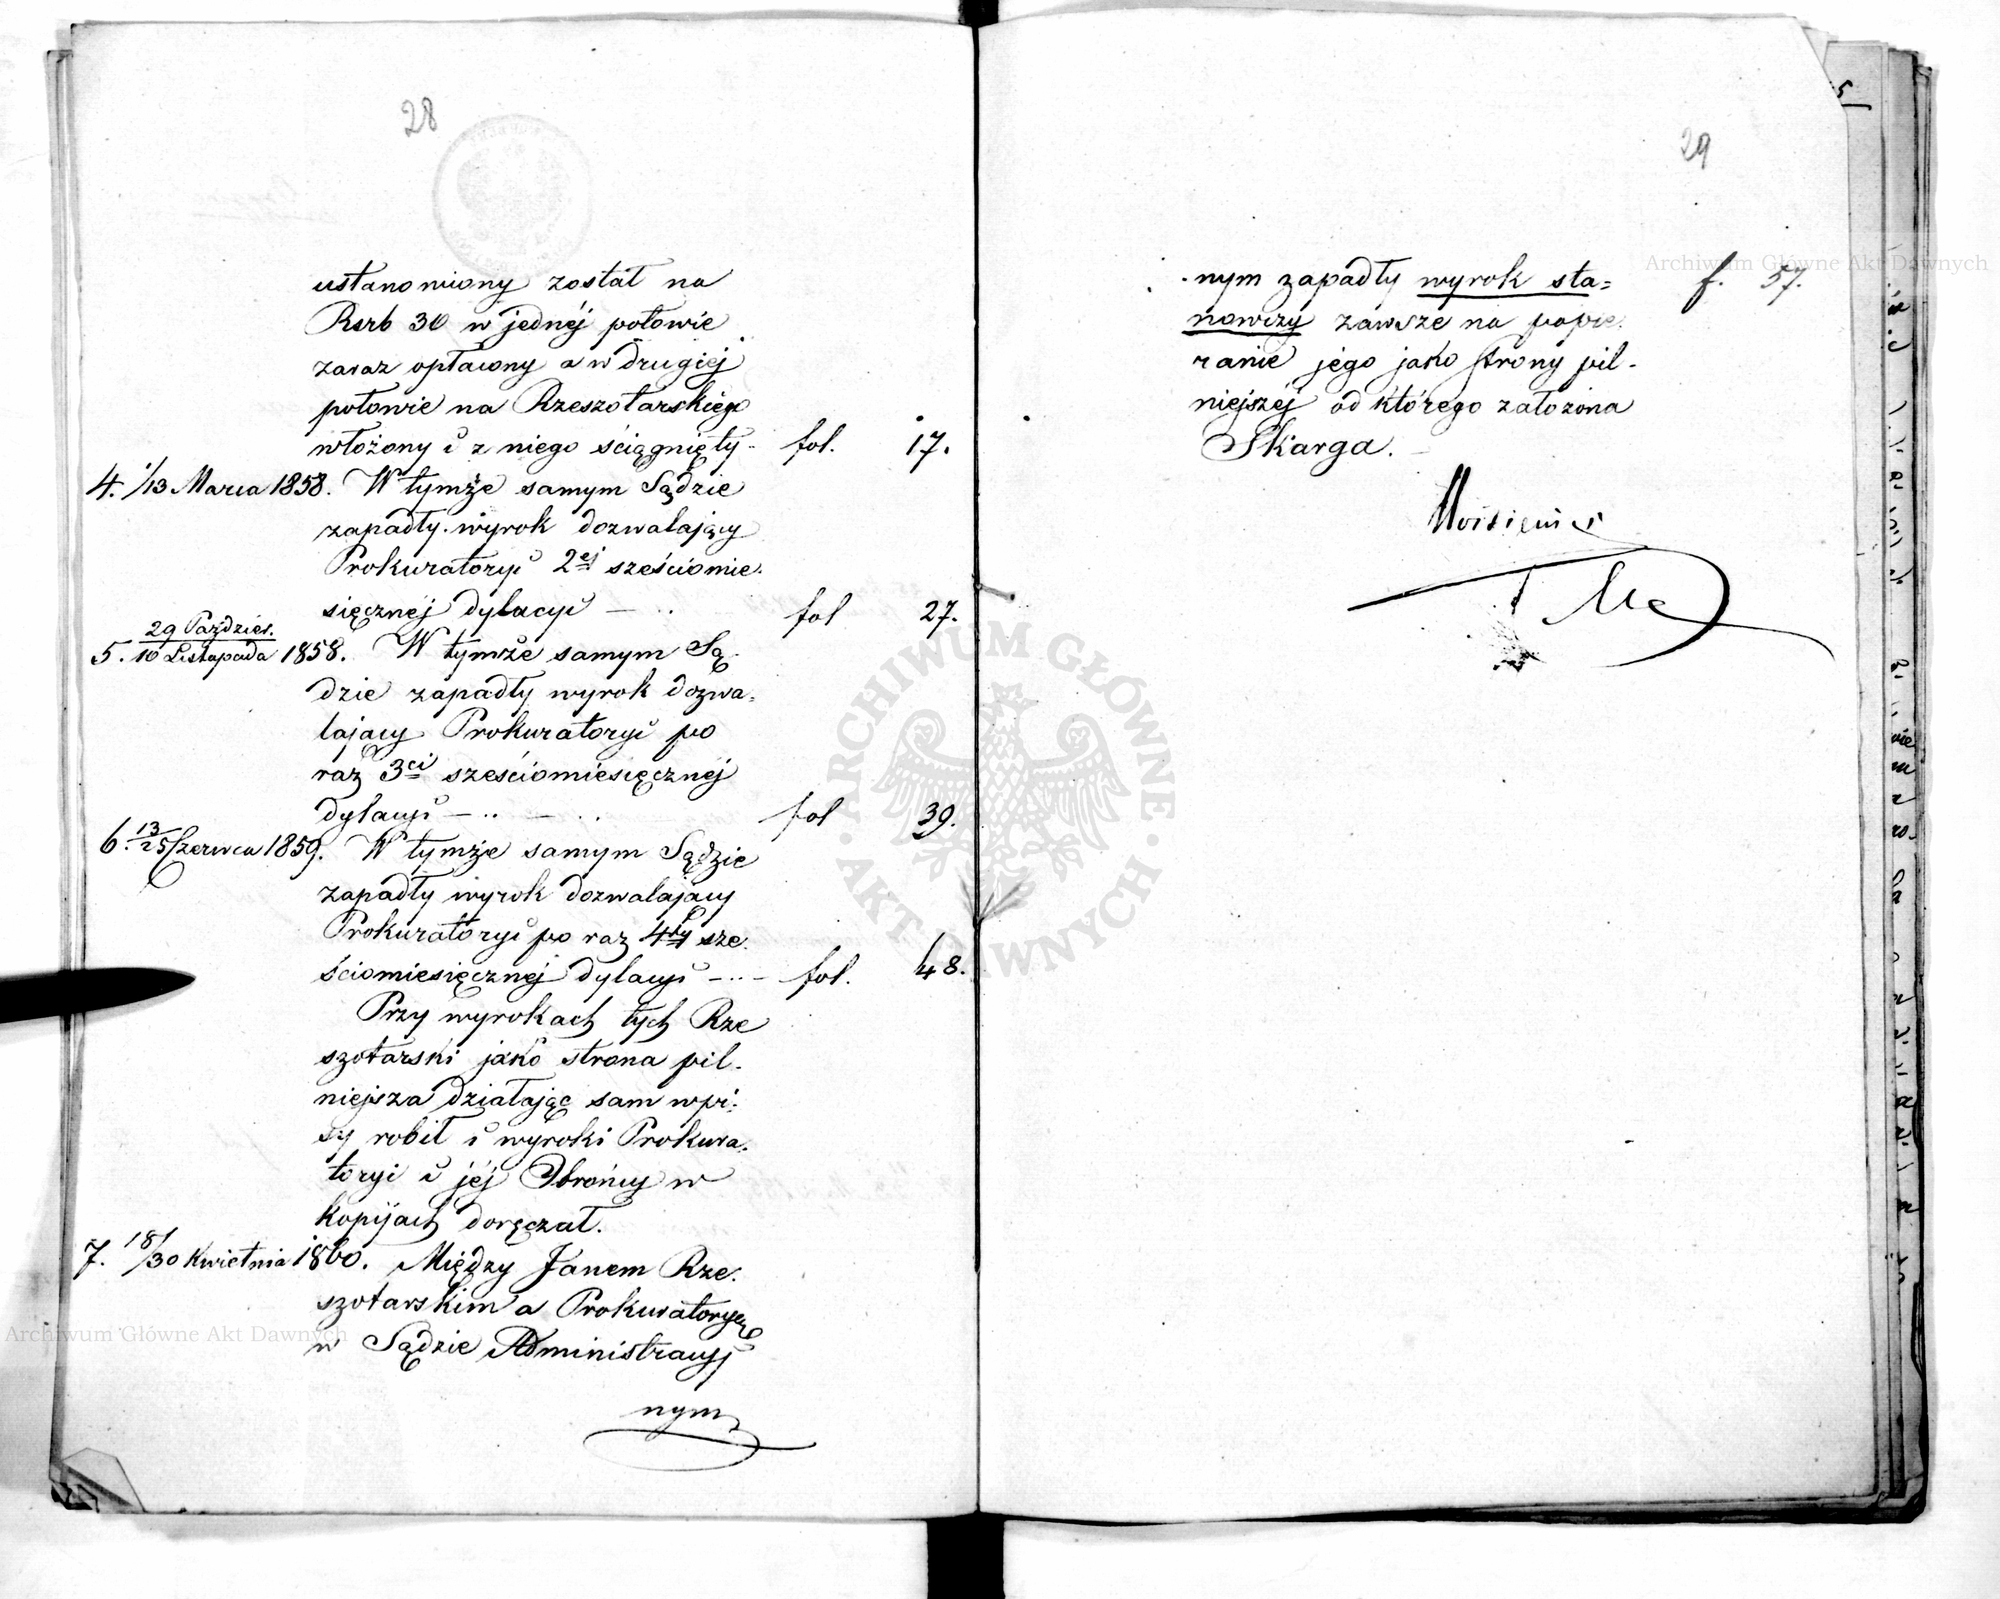 28
ustanowiony został na
Rsrb 30 w jednéj połowie
zaraz opłacony a w drugiéj
połowie na Rzeszotarskiego
włożony i z niego ściągnięty - fol. 17.
4. 1/13 Marca 1858. W tymże samym Sądzie
zapadły wyrok dozwalający
Prokuratoryi 2éj sześciomie-
sięcznéj dylacyi — .. fol 27.
29 Paździer.
5. 10 Listopada 1858. W tymże samym Są-
dzie zapadły wyrok dozwa-
lający Prokuratoryi po
raz 3ci sześciomiesięcznéj
dylacyi — .. — .. fol 39.
6. 13/25 Czerwca 1859. W tymże samym Sądzie
zapadły wyrok dozwalający
Prokuratoryi po raz 4ty sze-
ściomiesięcznéj dylacyi — .. — fol. 48.
Przy wyrokach tych Rze
szotarski jako strona pil-
niejsza działając sam wpi-
sy robił i wyroki Prokura-
toryi i jéj Obrońcy w
kopijach doręczał.
7. 18/30 Kwietnia 1860. Między Janem Rze-
szotarskim a Prokuratoryą
w Sądzie Administracyj
nym
29
nym zapadły wyrok sta= f. 57.
nowczy zawsze na popie-
ranie jego jako strony pil-
niejszéj od którego założona
Skarga.
ARCHIWUM GŁÓWNE AKT DAWNYCH
Archiwum Główne Akt Dawnych
Archiwum Główne Akt Dawnych